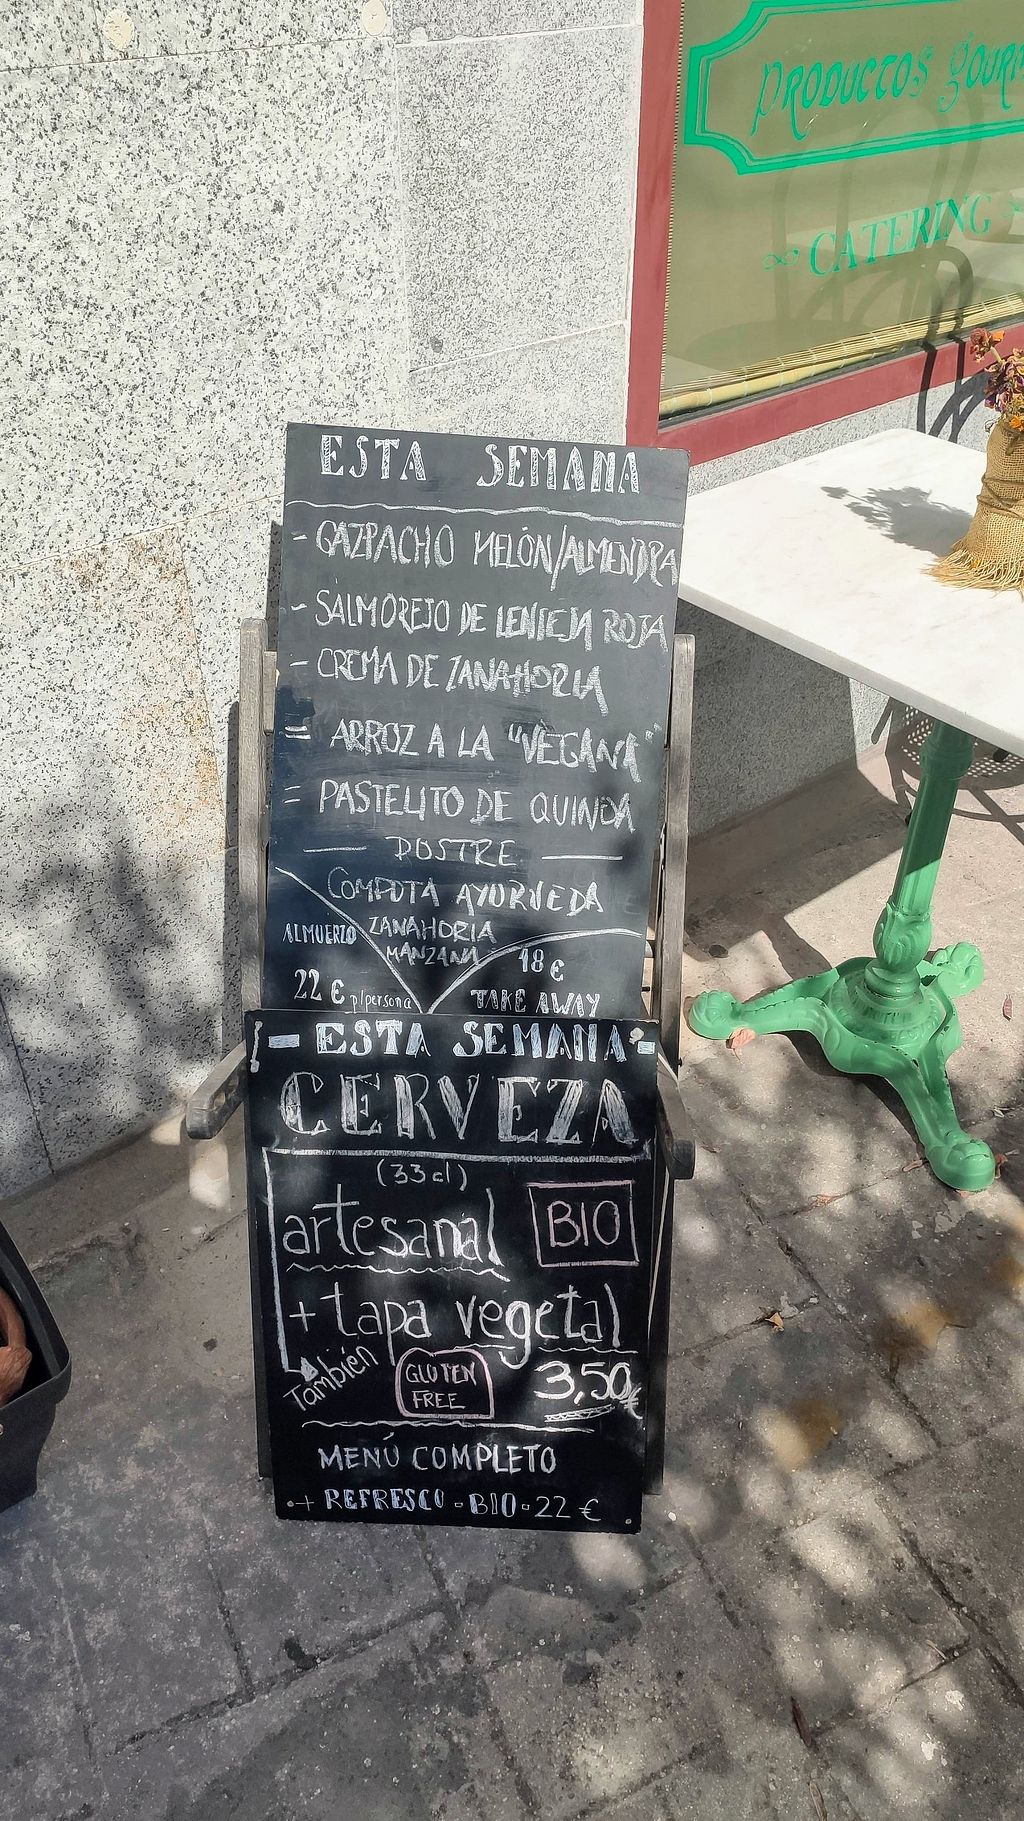 PRODUCTOS gourm
CATERING
ESTA SEMANA
- GAZPACHO MELÓN/ALMENDRA
- SALMOREJO DE LENTEJA ROJA
- CREMA DE ZANAHORIA
= ARROZ A LA "VEGANA"
= PASTELITO DE QUINOA
POSTRE
COMPOTA AYURVEDA
ZANAHORIA
MANZANA
ALMUERZO
22 € p/persona
18 €
TAKE AWAY
- ESTA SEMANA -
CERVEZA
(33 cl)
artesanal BIO
+ tapa vegetal
También GLUTEN FREE 3,50 €
MENÚ COMPLETO
+ REFRESCO - BIO - 22 €